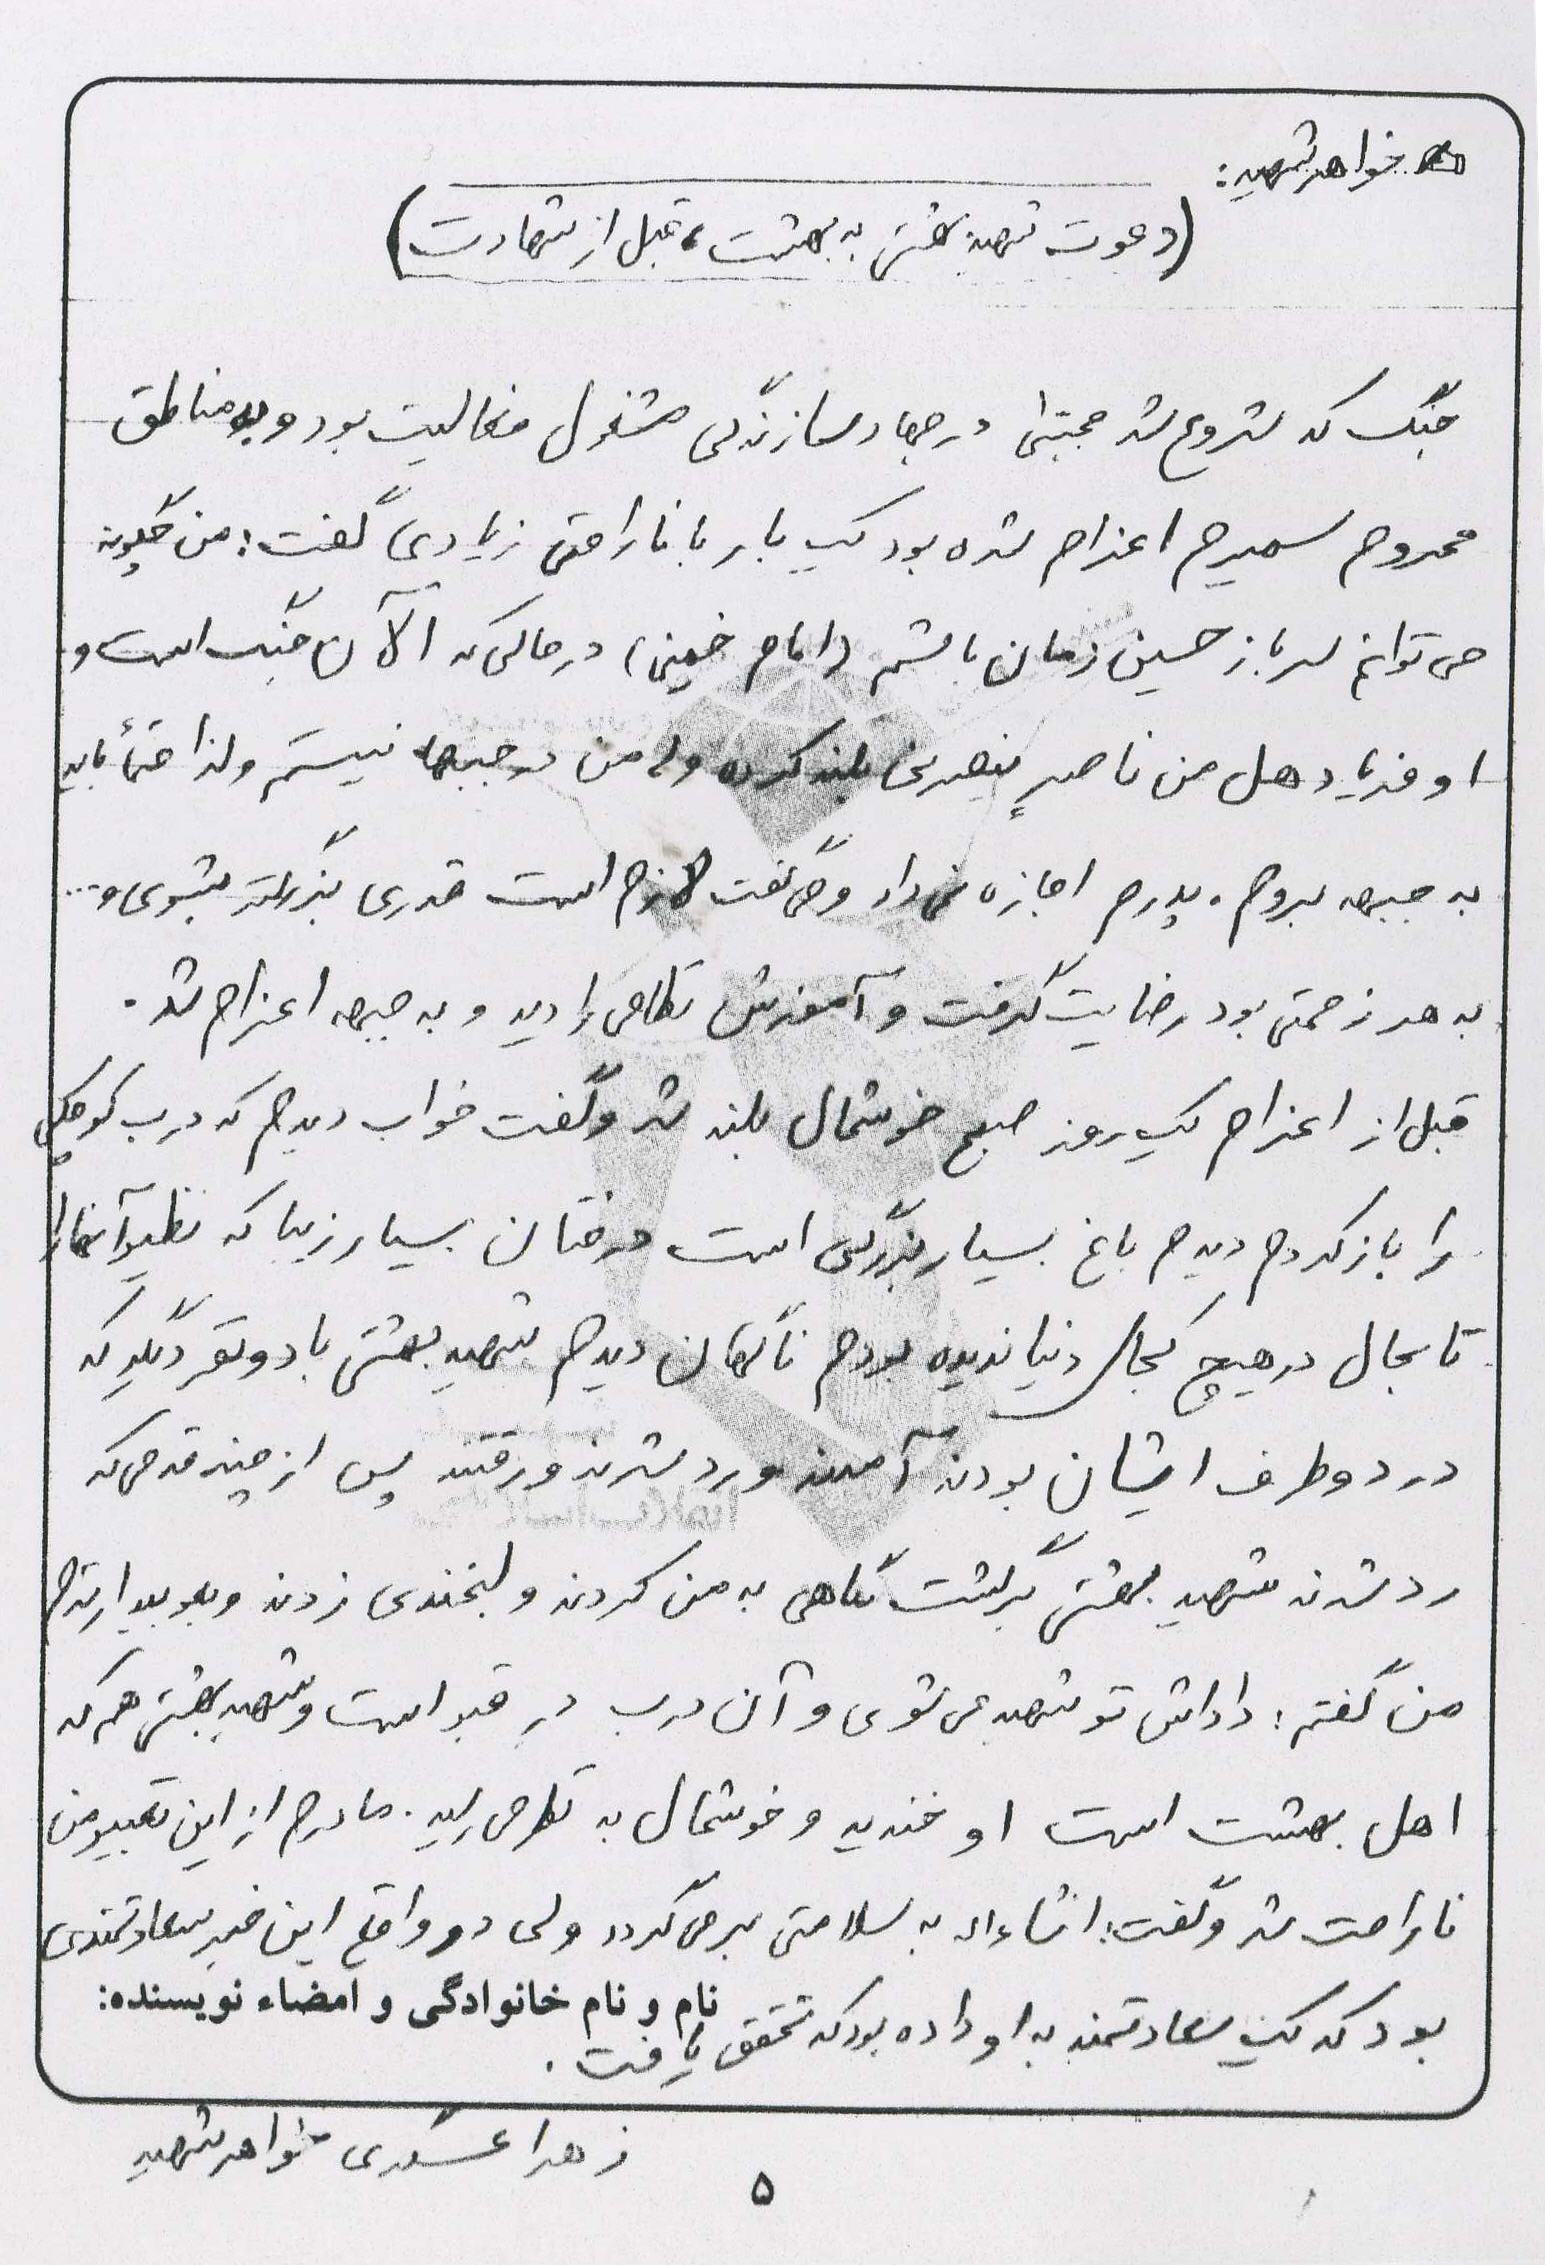 خواهر شهید:
(دعوت شهید بهشتی به بهشت، قبل از شهادت)
جنگ که شروع شد مجتبی در جهاد سازندگی مشغول فعالیت بود و به مناطق
محروم سمیرم اعزام شده بود یک بار با ناراحتی زیادی گفت: من چگونه
می توانم سرباز حسین زمان باشم (امام خمینی) در حالی که الآن جنگ است و
او فریاد هل من ناصرٍ ینصرنی بلند کرده ولی من در جبهه نیستم ولذا حتماً باید
به جبهه بروم. پدرم اجازه نمی داد و می گفت لازم است قدری بزرگتر بشوی و...
به هر زحمتی بود رضایت گرفت و آموزش نظامی را دید و به جبهه اعزام شد.
قبل از اعزام یک روز صبح خوشحال بلند شد و گفت خواب دیدم که درب کوچکی
را باز کردم دیدم باغ بسیار بزرگی است درختان بسیار زیبا که نظیر آنها را
تا بحال در هیچ کجای دنیا ندیده بودم ناگهان دیدم شهید بهشتی با دو نفر دیگر که
در دو طرف ایشان بودند آمدند و رد شدند و رفتند پس از چند قدمی که
رد شدند شهید بهشتی برگشت نگاهی به من کردند و لبخندی زدند و بعد بیدار شدم
من گفتم: داداش تو شهید می شوی و آن درب درِ قبر است و شهید بهشتی هم که
اهل بهشت است او خندید و خوشحال به نظر می رسید. مادرم از این تعبیر من
ناراحت شد و گفت: انشاءاله به سلامتی برمی گردد ولی در واقع این خبر سعادتمندی
بود که یک سعادتمند به او داده بود که تحقق یافت.
نام و نام خانوادگی و امضاء نویسنده:
زهرا عسگری خواهر شهید
۵